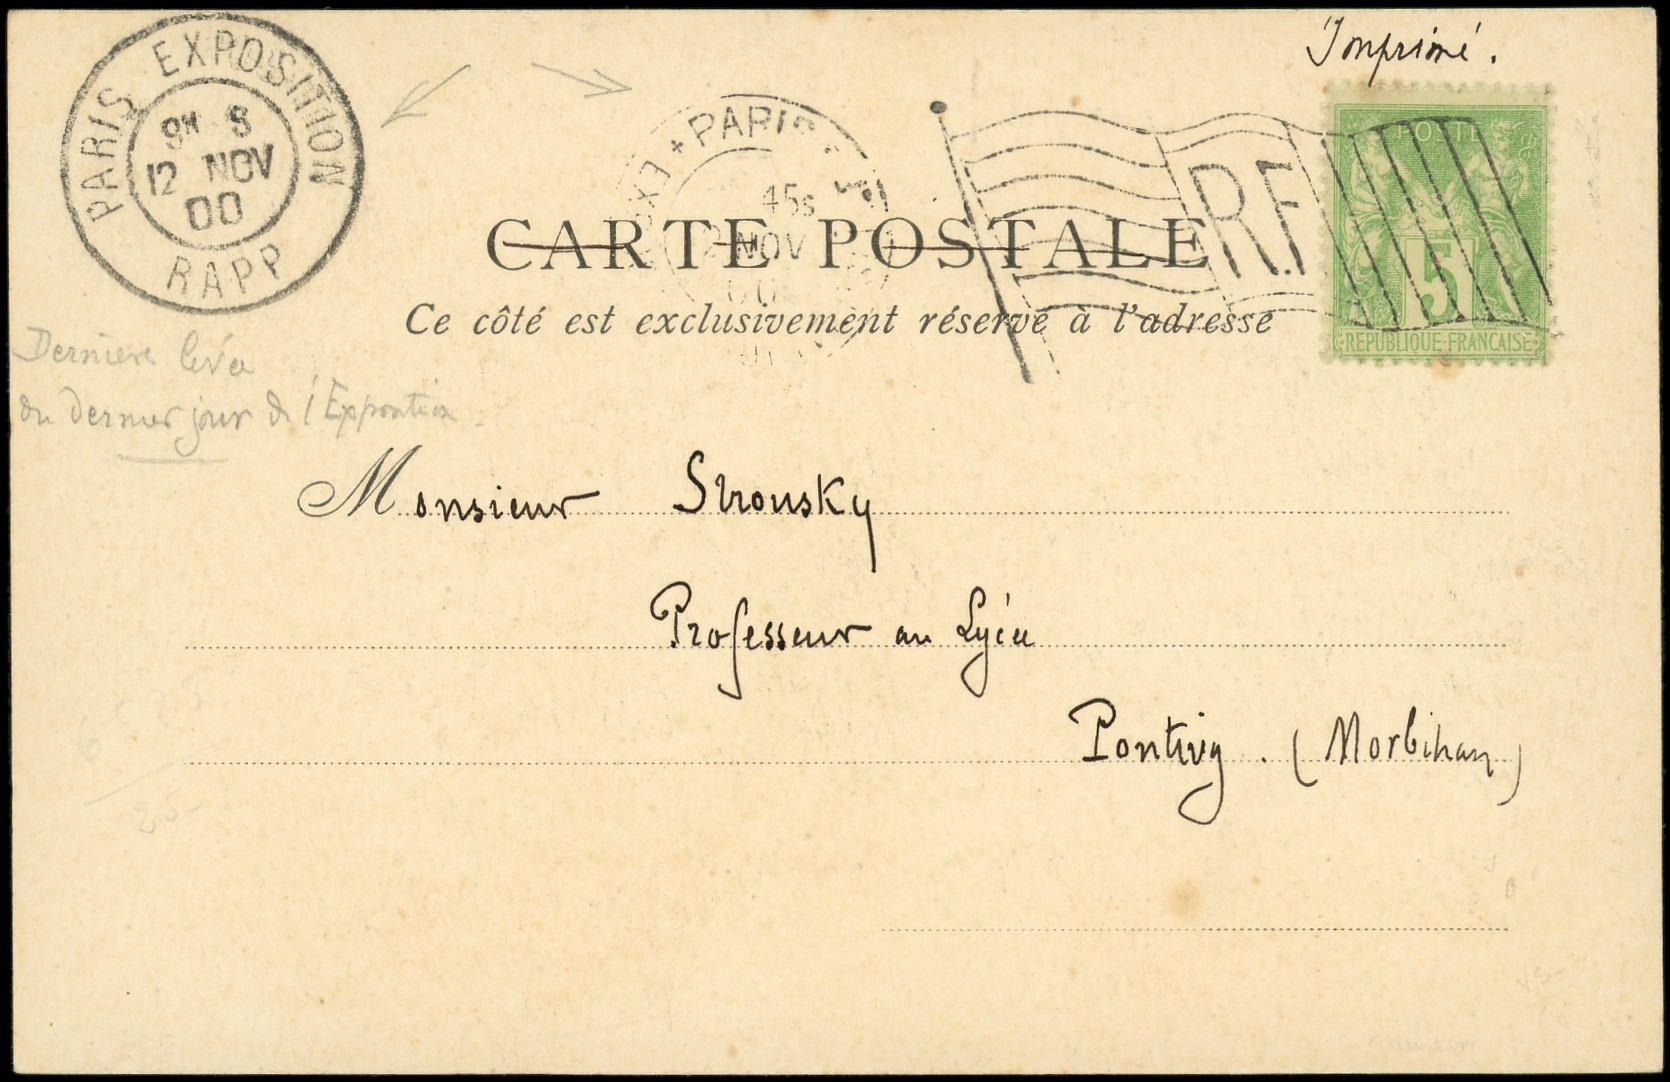 Imprimé.
PARIS EXPOSITION
9M S
12 NOV
00
RAPP
PARIS
45s
NOV
R.F
POSTE
5
REPUBLIQUE FRANCAISE
CARTE POSTALE
Ce côté est exclusivement réservé à l'adresse
Dernière levée
du dernier jour de l'Exposition.
Monsieur Strousky
Professeur au Lycée
Pontivy. (Morbihan)